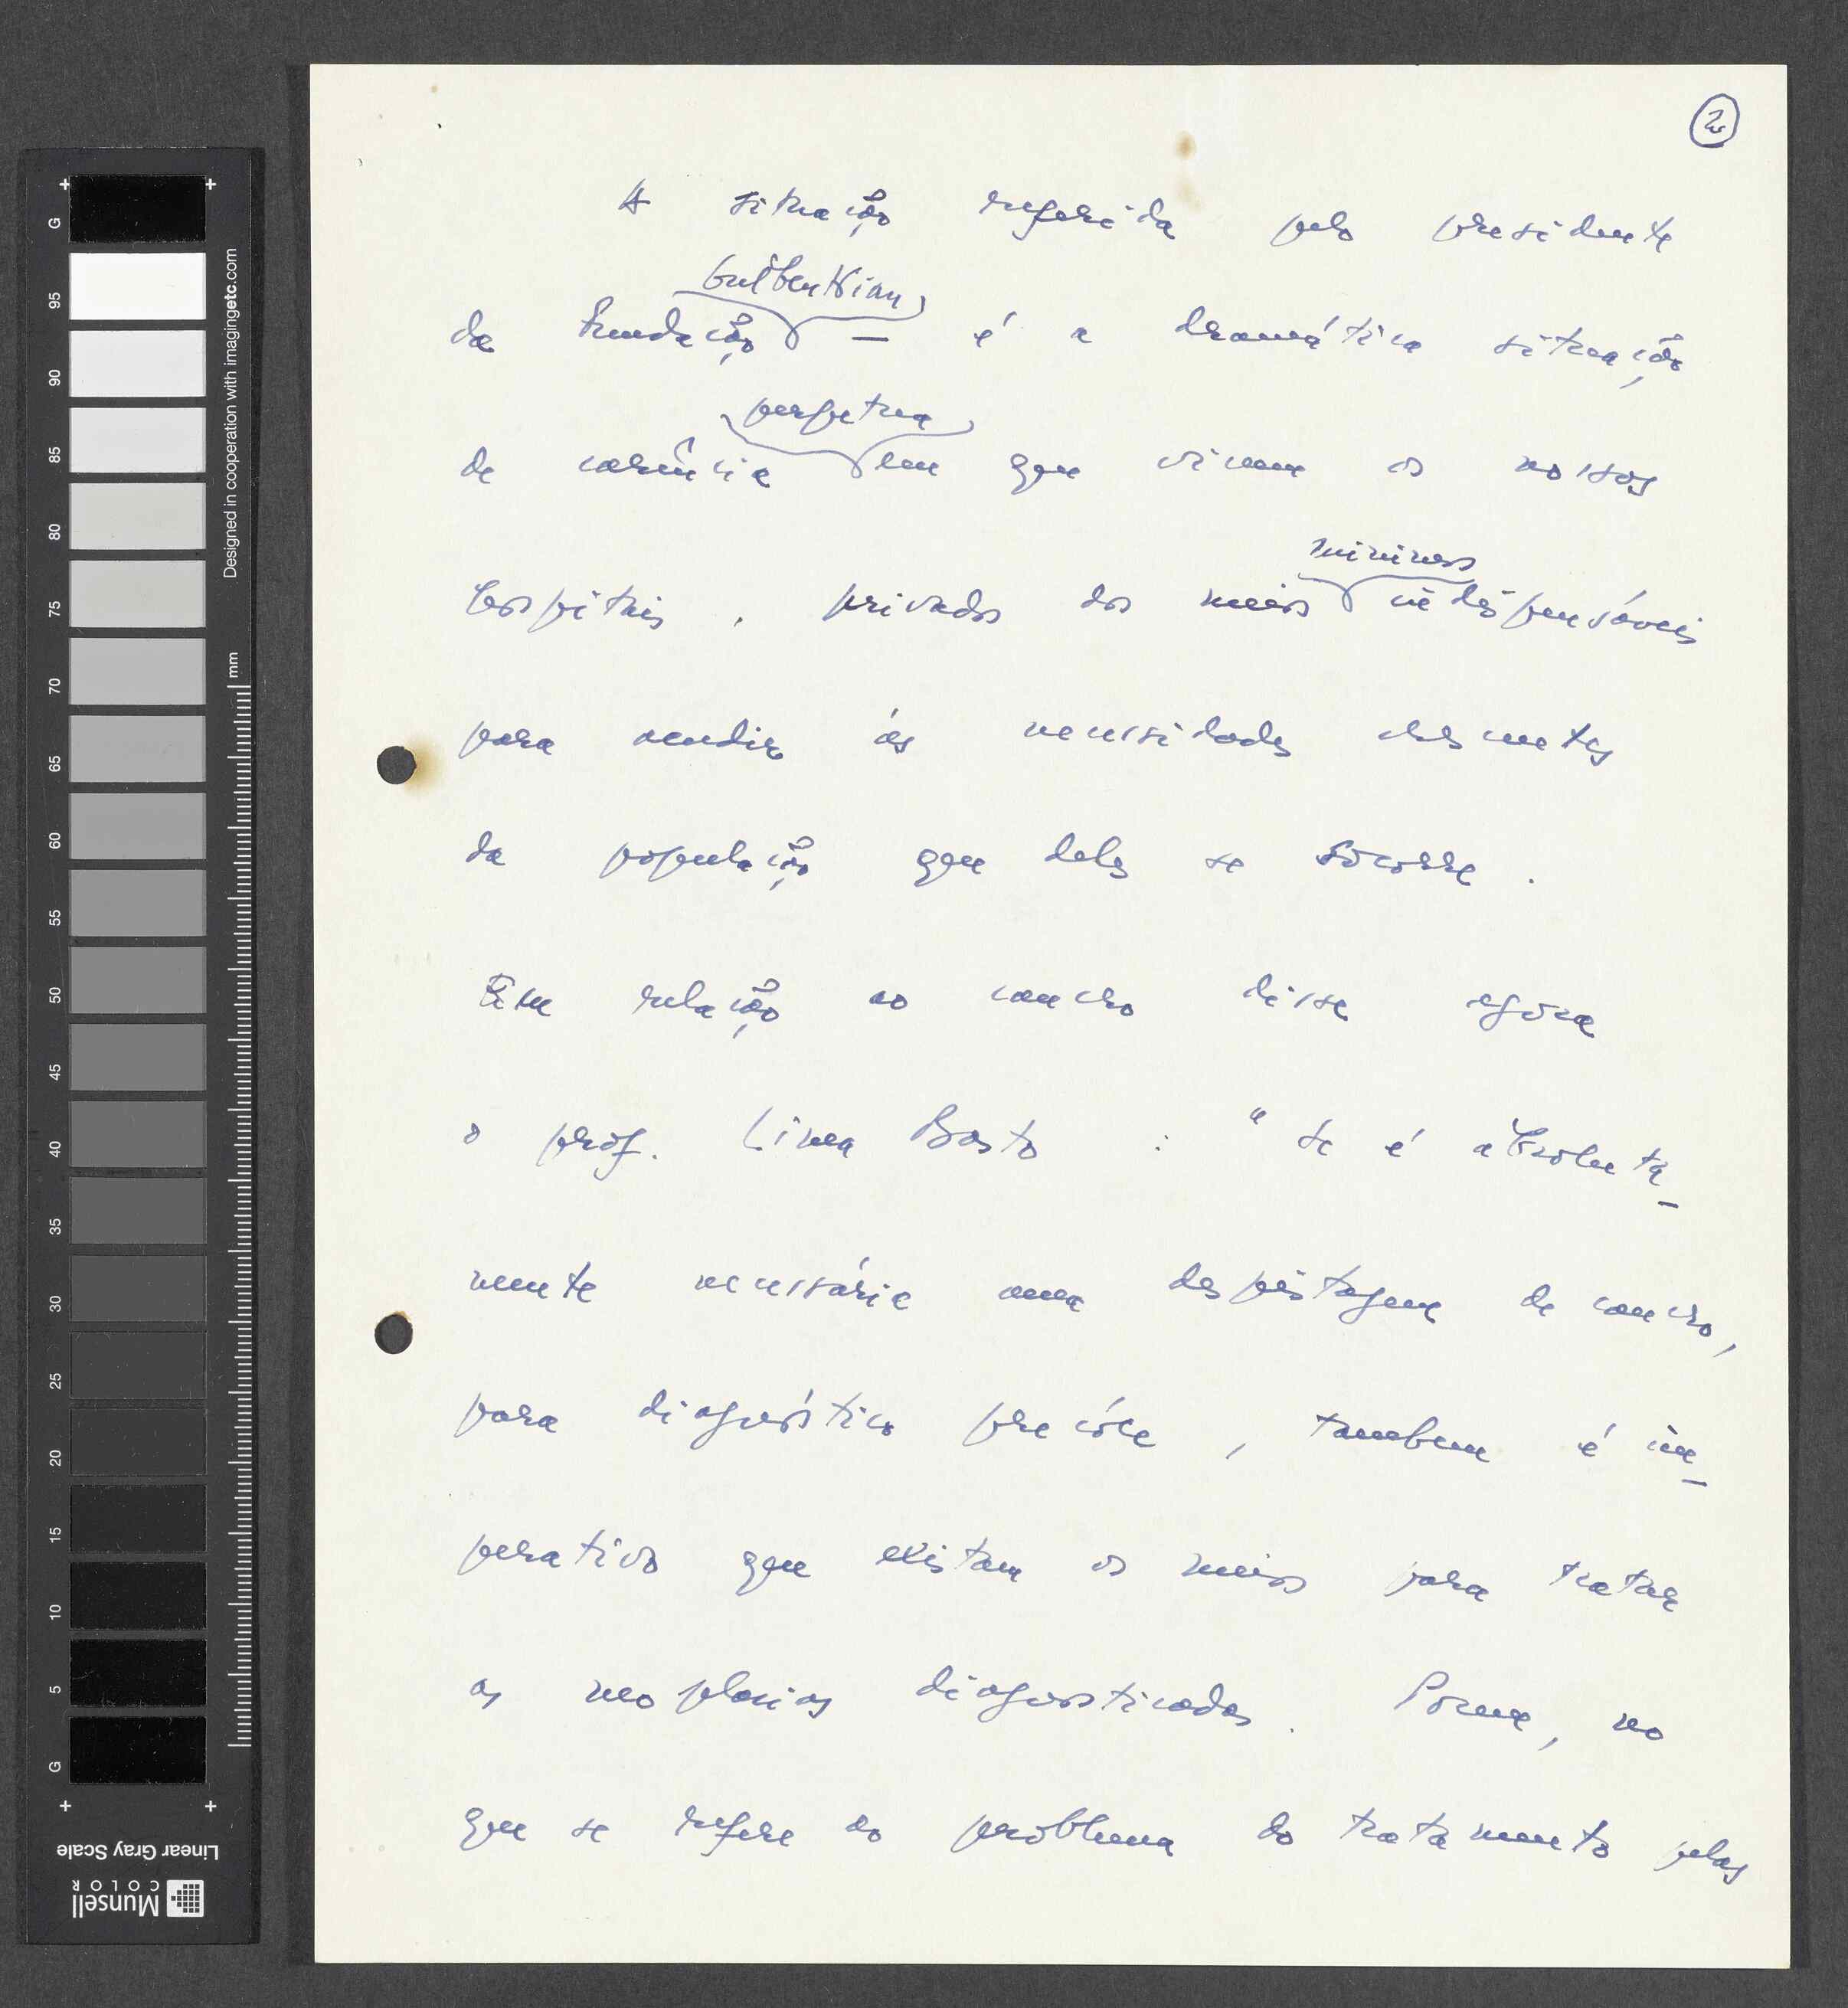 2
A situação referida pelo presidente
Gulbenkian
da Fundação — é a dramática situação
perpetua
de carência em que vivem os nossos
minimos
hospitais, privados dos meios indispensáveis
para acudir ás necessidades
da população que deles se socorre.
Em relação ao cancro disse agora
o prof. Lima Basto : "Se é absoluta-
mente necessária uma despistagem de cancro,
para diagnóstico precóce, tambem é im-
perativo que existam os meios para tratar
as neoplasias diagnosticadas. Porem, no
que se refere ao problema do tratamento pelas
G 95 90 85 80 75 70 65 60 55 50 45 40 35 30 25 20 15 10 5 G
Designed in cooperation with imagingetc.com
mm
Linear Gray Scale
Munsell
COLOR